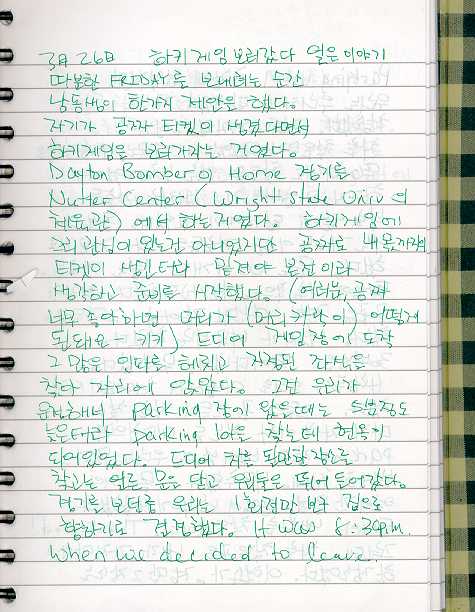 3月 26日 하키게임 보러갔다 얻은 이야기
따분한 FRIDAY를 보내려는 순간
남동생이 한가지 제안을 했다.
자기가 공짜 티켓이 생겼다면서
하키게임을 보러가자는 거였다.
Dayton Bomber의 Home 경기를
Nutter Center (Wright State Univ의
체육관)에서 하는거였다. 하키게임에
그리 관심이 있는건 아니었지만 공짜로 내 몫까지
티켓이 생긴터라 밑져야 본전이라
생각하고 준비를 시작했다. (여러분, 공짜
너무 좋아하면 머리가 (머리카락이) 어떻게
된대요 - 키키) 드디어 게임장에 도착
그 많은 인파를 헤치고 지정된 좌석을
찾아 자리에 앉았다. 그전 우리가
도착해서 parking 장에 왔을때는 5분정도
늦은터라 parking lot을 찾는데 혈육이
되어있었다. 드디어
차고는 얼른 문을 닫고 우리둘은 뛰어 들어갔다.
경기를 보던중 우리는 1회전만 보구 집으로
향하기로 결정했다. It was 8:30p.m.
when we decided to leave.